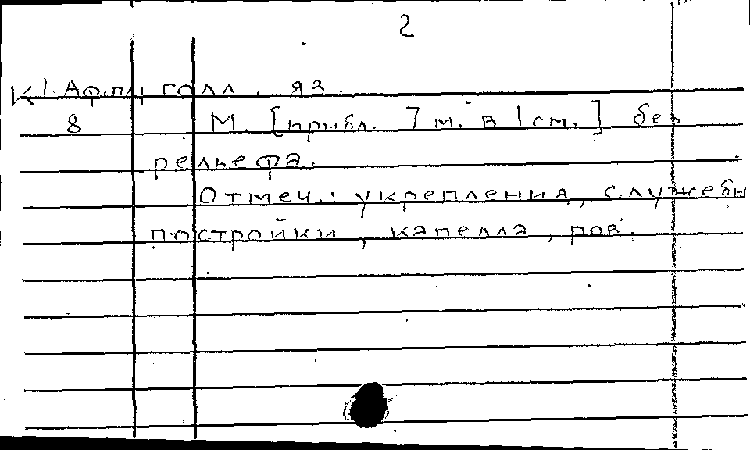 2
К1 Афри голл. яз.
8 М. [прибл. 7 м. в 1 см.] без
рельефа.
Отмеч.: укрепления, служебн
постройки, капелла, ров.